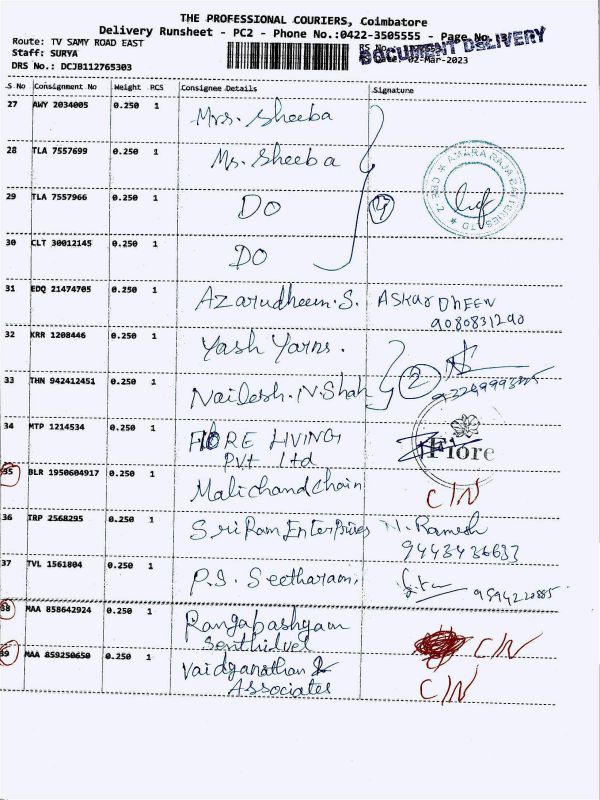 THE PROFESSIONAL COURIERS, Coimbatore
Delivery Runsheet - PC2 - Phone No.:0422-3505555 - Page No.
Route: TV SAMY ROAD EAST
DOCUMENT DELIVERY
Staff: SURYA
02-Mar-2023
DRS No.: DCJB112765303
S No Consignment No Weight PCS Consignee Details Signature
27 AWY 2034005 0.250 1 Mrs. Sheeba
28 TLA 7557699 0.250 1 Ms. Sheeba
AMARA RAJA BATTERIES LTD
29 TLA 7557966 0.250 1 DO 4
30 CLT 30012145 0.250 1 DO
31 EDQ 21474705 0.250 1 Azarudheen. S. ASKAR DHEEN
9080831290
32 KRR 1208446 0.250 1 Yash Yarns.
33 THN 942412451 0.250 1 Nailesh. N. Shah 2
34 MTP 1214534 0.250 1 FIORE LIVING
Pvt Ltd
Fiore
35 BLR 1950604917 0.250 1 Malichandchain C/N
36 TRP 2568295 0.250 1 Sri Ram Enterprises N. Ramesh
9443436633
37 TVL 1561804 0.250 1 P.S. Seetharam,
38 MAA 858642924 0.250 1 Rangapashyam
Senthilvel C/N
39 MAA 859250650 0.250 1 Vaidyanathan &
Associates C/N